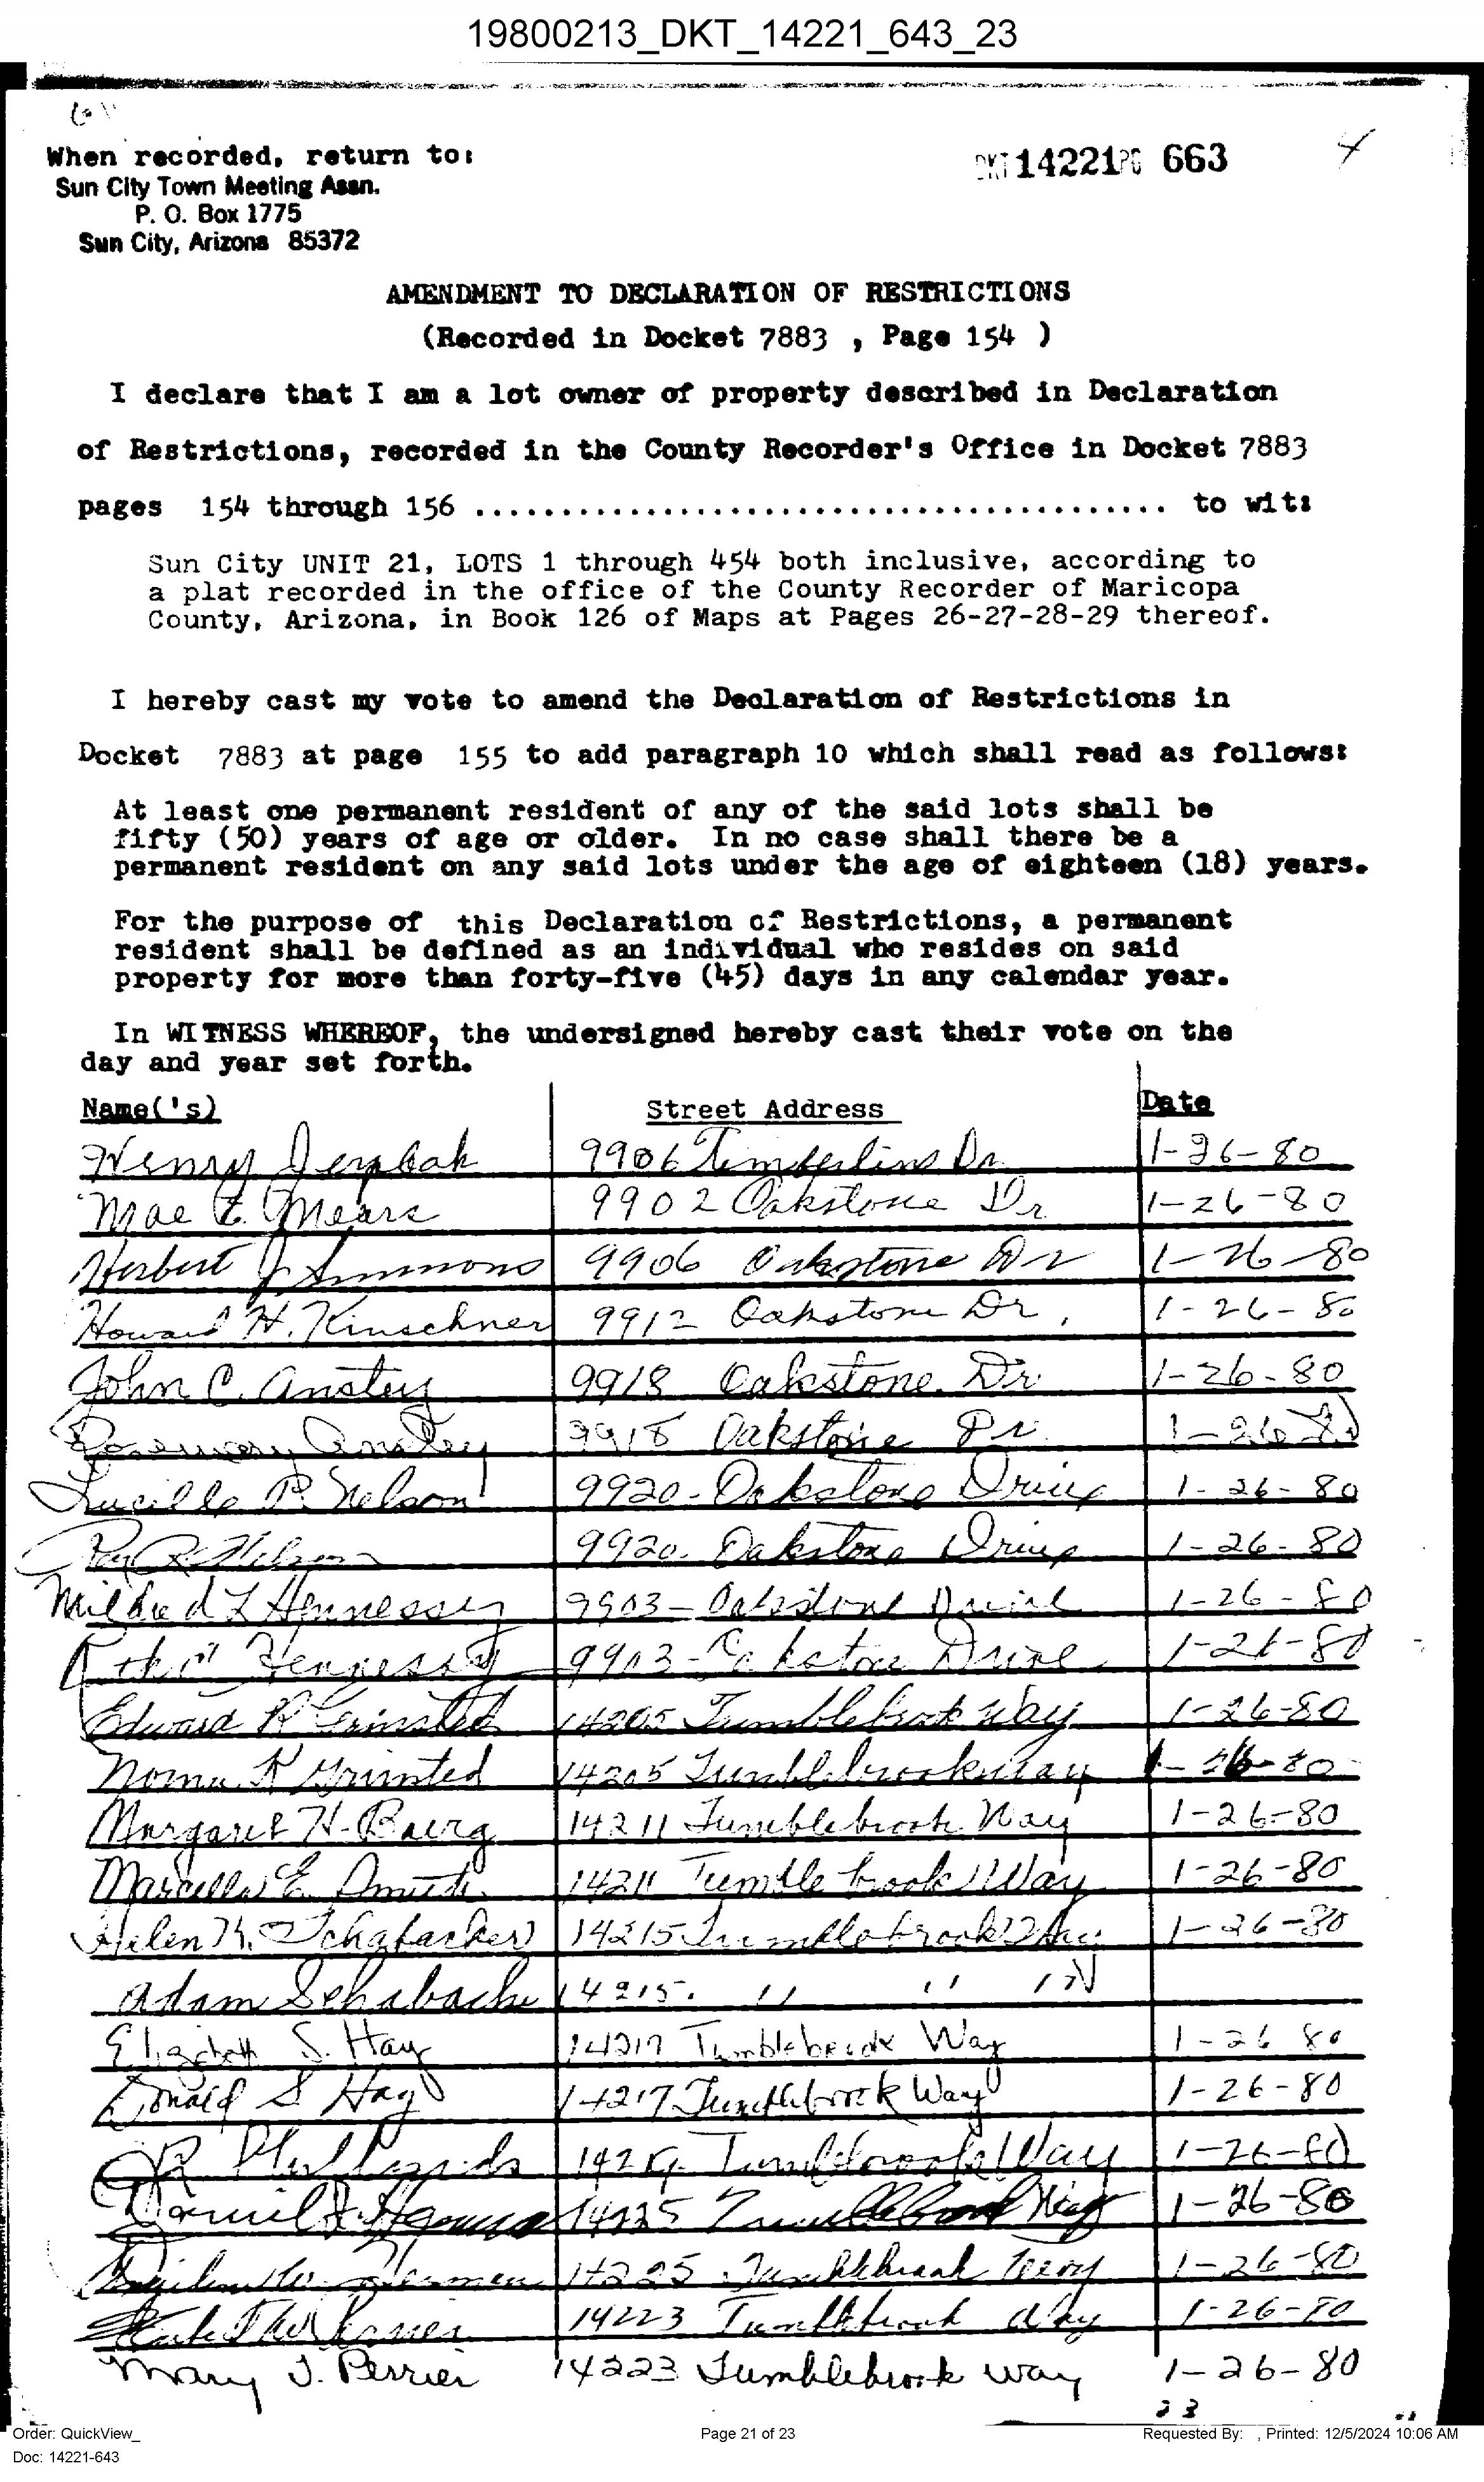 19800213_DKT_14221_643_23
When recorded, return to:
DKT 14221 PG 663
Sun City Town Meeting Assn.
P. O. Box 1775
Sun City, Arizona 85372
AMENDMENT TO DECLARATION OF RESTRICTIONS
(Recorded in Docket 7883 , Page 154 )
I declare that I am a lot owner of property described in Declaration
of Restrictions, recorded in the County Recorder's Office in Docket 7883
pages 154 through 156 ......................................... to wit:
Sun City UNIT 21, LOTS 1 through 454 both inclusive, according to
a plat recorded in the office of the County Recorder of Maricopa
County, Arizona, in Book 126 of Maps at Pages 26-27-28-29 thereof.
I hereby cast my vote to amend the Declaration of Restrictions in
Docket 7883 at page 155 to add paragraph 10 which shall read as follows:
At least one permanent resident of any of the said lots shall be
fifty (50) years of age or older. In no case shall there be a
permanent resident on any said lots under the age of eighteen (18) years.
For the purpose of this Declaration of Restrictions, a permanent
resident shall be defined as an individual who resides on said
property for more than forty-five (45) days in any calendar year.
In WITNESS WHEREOF, the undersigned hereby cast their vote on the
day and year set forth.
Name('s) Street Address Date
Henry 9906 Dr 1-26-80
Mae E. Mears 9902 Oakstone Dr 1-26-80
Herbert J. Simmons 9906 Oakstone Dr 1-26-80
Howard H. Kinschner 9912 Oakstone Dr. 1-26-80
John C. Anstey 9918 Oakstone Dr. 1-26-80
Rosemary Anstey 9918 Oakstone Dr. 1-26-80
Lucille P. Nelson 9920- Oakstone Drive 1-26-80
Ray R Nelson 9920- Oakstone Drive 1-26-80
Mildred L Hennessy 9903- Oakstone Drive 1-26-80
Hennessy 9903- Oakstone Drive 1-26-80
Edward R Grinsted 14205 Tumblebrook Way 1-26-80
Norma K Grinsted 14205 Tumblebrook Way 1-26-80
Margaret H. Baerg 14211 Tumblebrook Way 1-26-80
Marcella E. 14211 Tumblebrook Way 1-26-80
Helen K. Schabacker 14215 Tumblebrook Way 1-26-80
Adam Schabacke 14215. " " "
Elizabeth S. Hay 14217 Tumblebrook Way 1-26 80
Donald S Hay 14217 Tumblebrook Way 1-26-80
Tumblebrook Way 1-26-80
14225 Tumblebrook Way 1-26-80
14225 Tumblebrook Way 1-26-80
14223 Tumblebrook Way 1-26-80
Mary J. Perrier 14223 Tumblebrook Way 1-26-80
23
Order: QuickView_ Page 21 of 23 Requested By: , Printed: 12/5/2024 10:06 AM
Doc: 14221-643